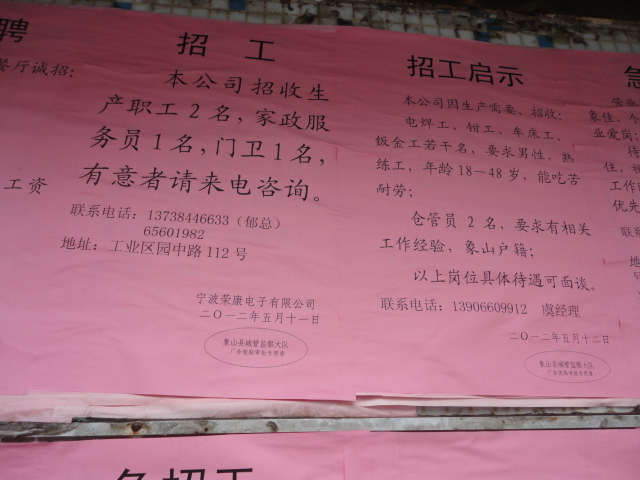 聘
餐厅诚招：
工资
招工
本公司招收生
产职工2名，家政服
务员1名，门卫1名，
有意者请来电咨询。
联系电话：13738446633（郁总）
65601982
地址：工业区园中路112号
宁波荣康电子有限公司
二〇一二年五月十一日
象山县城管监察大队
广告张贴审批专用章
招工启示
本公司因生产需要、招收：
电焊工、钳工、车床工、
钣金工若干名，要求男性，熟
练工，年龄18—48岁，能吃苦
耐劳；
仓管员 2 名，要求有相关
工作经验，象山户籍；
以上岗位具体待遇可面谈。
联系电话：13906609912 虞经理
二〇一二年五月十二日
象山县城管监察大队
广告张贴审批专用章
急
营业
象佳，今
业爱岗
待
住，被
工作
优先
联系
地
急招工